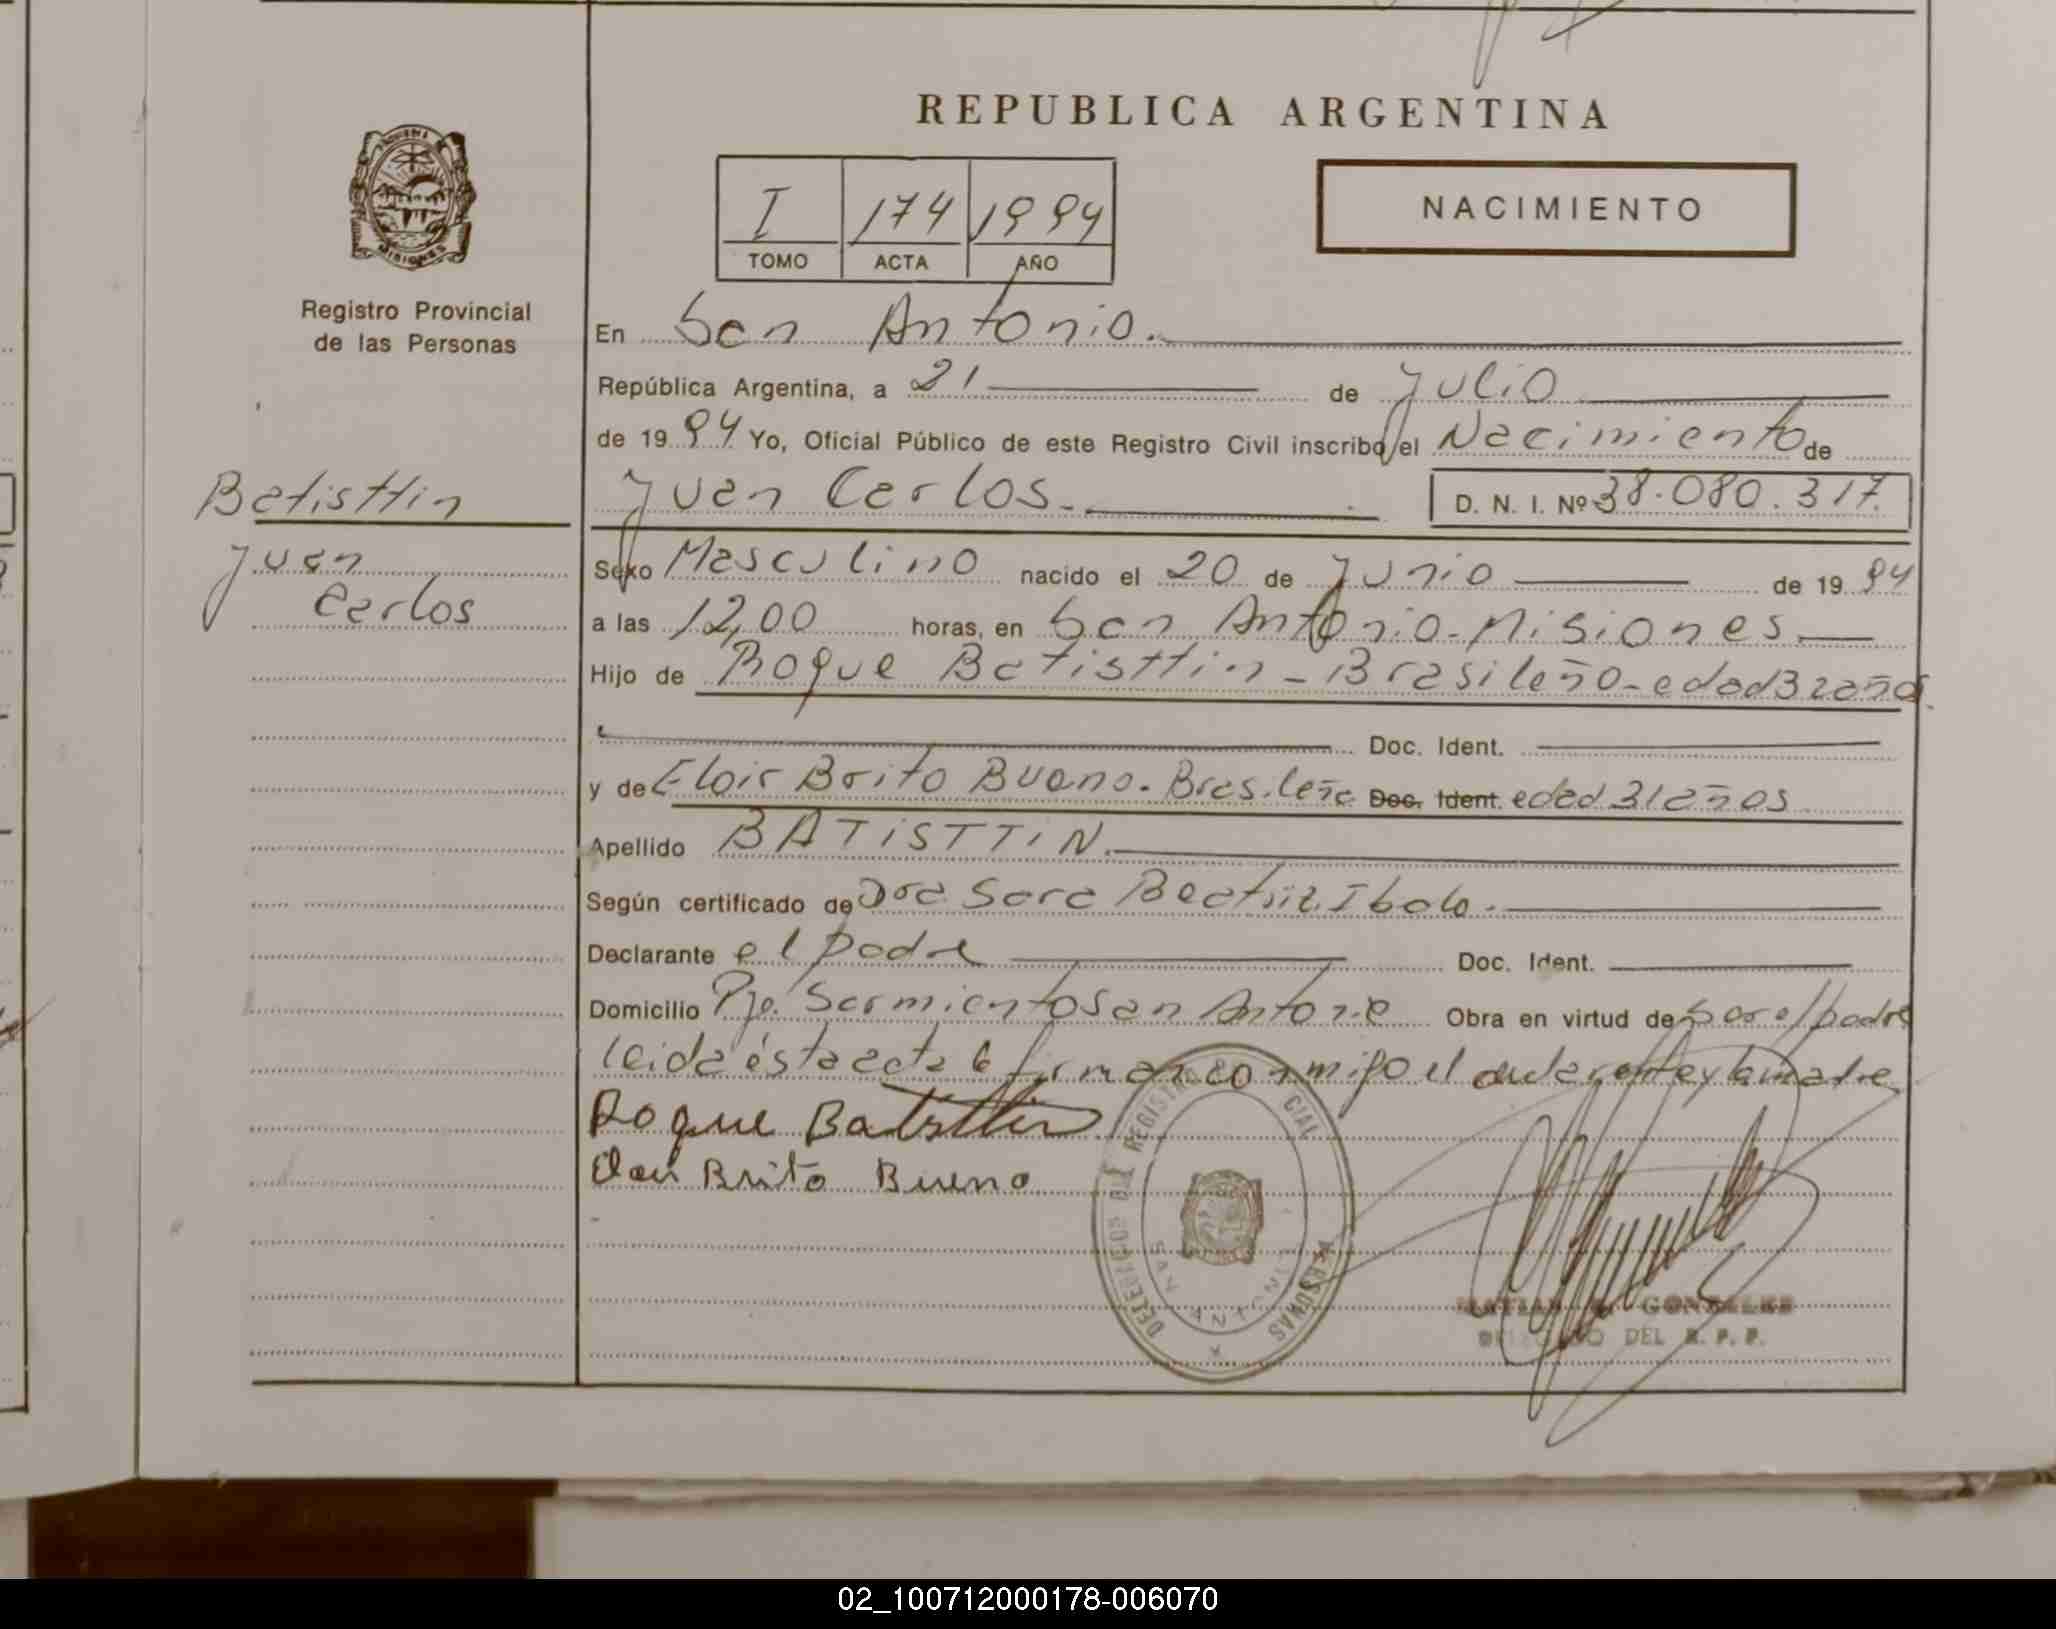 REPUBLICA ARGENTINA
MISIONES
Registro Provincial
de las Personas
I 174 1994
TOMO ACTA AÑO
NACIMIENTO
En San Antonio.
República Argentina, a 21 de Julio
de 1994 Yo, Oficial Público de este Registro Civil inscribo el Nacimiento de
Batisttin
Juan Carlos. D. N. I. Nº 38.080.317.
Juan
Carlos
Sexo Masculino nacido el 20 de Junio de 1994
a las 12,00 horas, en San Antonio-Misiones.
Hijo de Roque Batisttin - Brasileño - edad 32 años.
Doc. Ident.
y de Eloir Brito Bueno. Brasileña Doc. Ident. edad 31 años
Apellido BATISTTIN.
Según certificado de Dra Sara Beatriz
Declarante el padre Doc. Ident.
Domicilio Pje. Sarmiento San Antonio Obra en virtud de por el padre
leida ésta acta la firman conmigo el declarante y la madre
Roque Batisttin
Brito Bueno
SAN ANTONIO
GONZALES
DELEGADO DEL R. P. P.
02_100712000178-006070